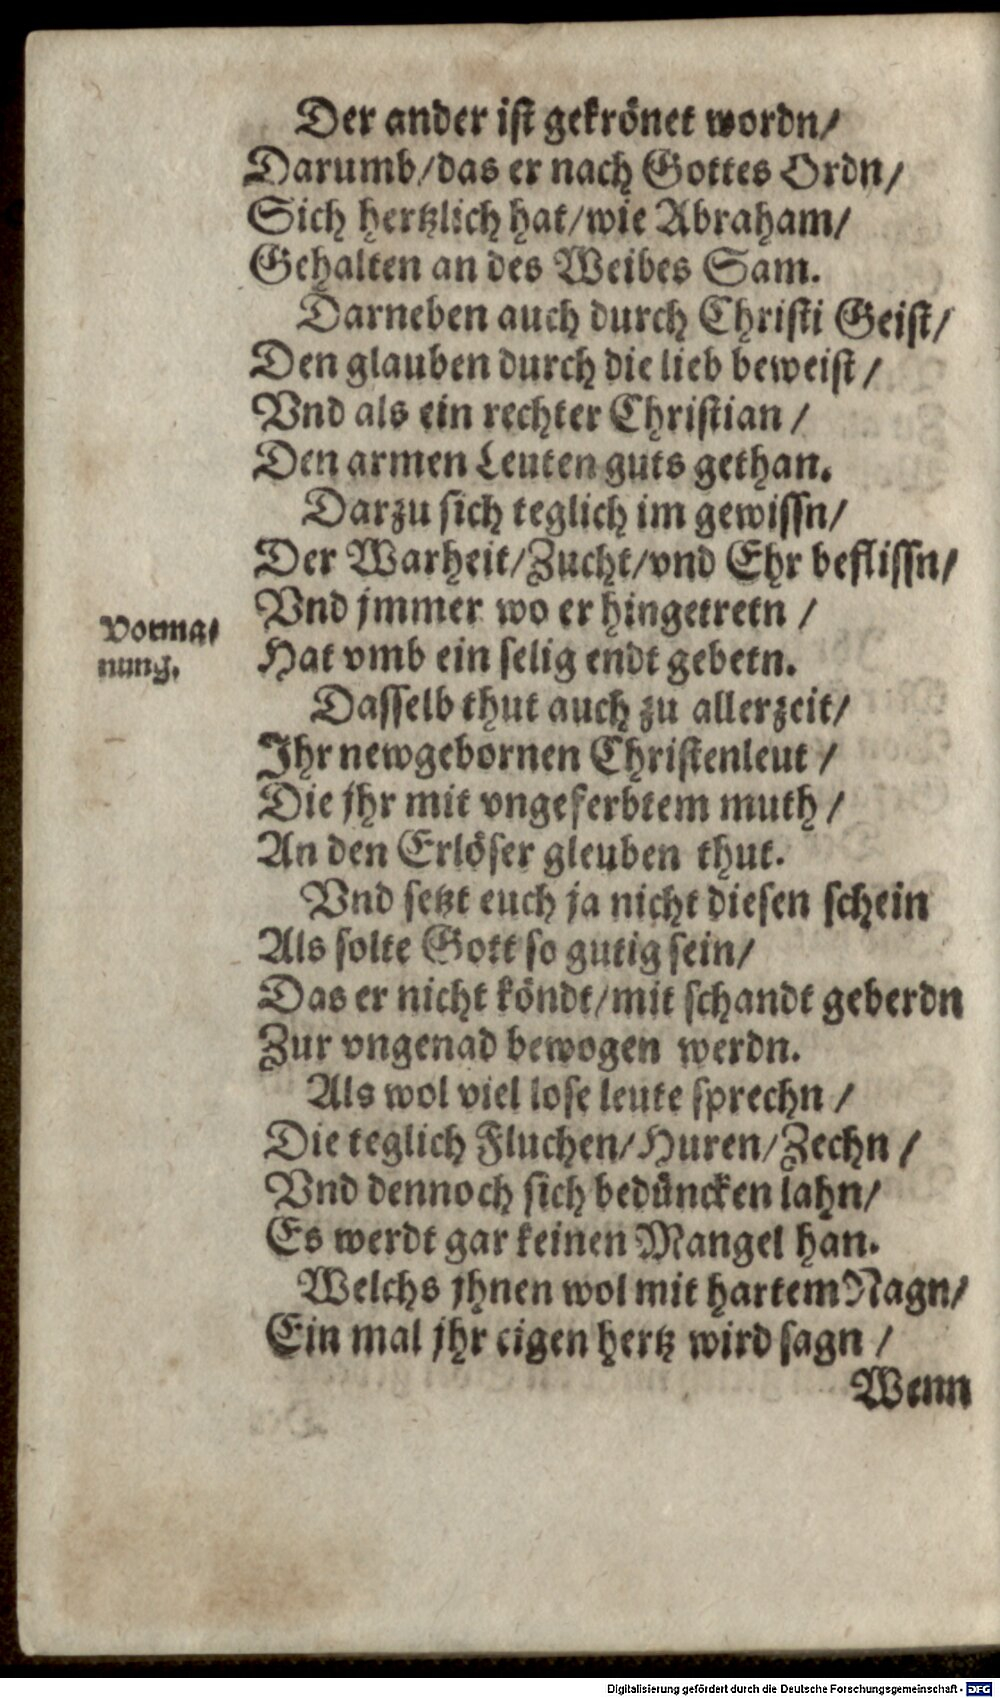 Der ander ist gekrönet wordn/
Darumb/das er nach Gottes Ordn/
Sich hertzlich hat/wie Abraham/
Gehalten an des Weibes Sam.
Darneben auch durch Christi Geist/
Den glauben durch die lieb beweist/
Vnd als ein rechter Christian/
Den armen Leuten guts gethan.
Darzu sich teglich im gewissn/
Der Warheit/Zucht/vnd Ehr beflissn/
Vnd jmmer wo er hingetretn/
Vorma-
nung.
Hat vmb ein selig endt gebetn.
Dasselb thut auch zu allerzeit/
Jhr newgebornen Christenleut/
Die jhr mit vngeferbtem muth/
An den Erlöser gleuben thut.
Vnd setzt euch ja nicht diesen schein
Als solte Gott so gutig sein/
Das er nicht köndt/mit schandt geberdn
Zur vngenad bewogen werdn.
Als wol viel lose leute sprechn/
Die teglich Fluchen/Huren/Zechn/
Vnd dennoch sich bedüncken lahn/
Es werdt gar keinen Mangel han.
Welchs jhnen wol mit hartem Nagn/
Ein mal jhr eigen hertz wird sagn/
Wenn
Digitalisierung gefördert durch die Deutsche Forschungsgemeinschaft - DFG